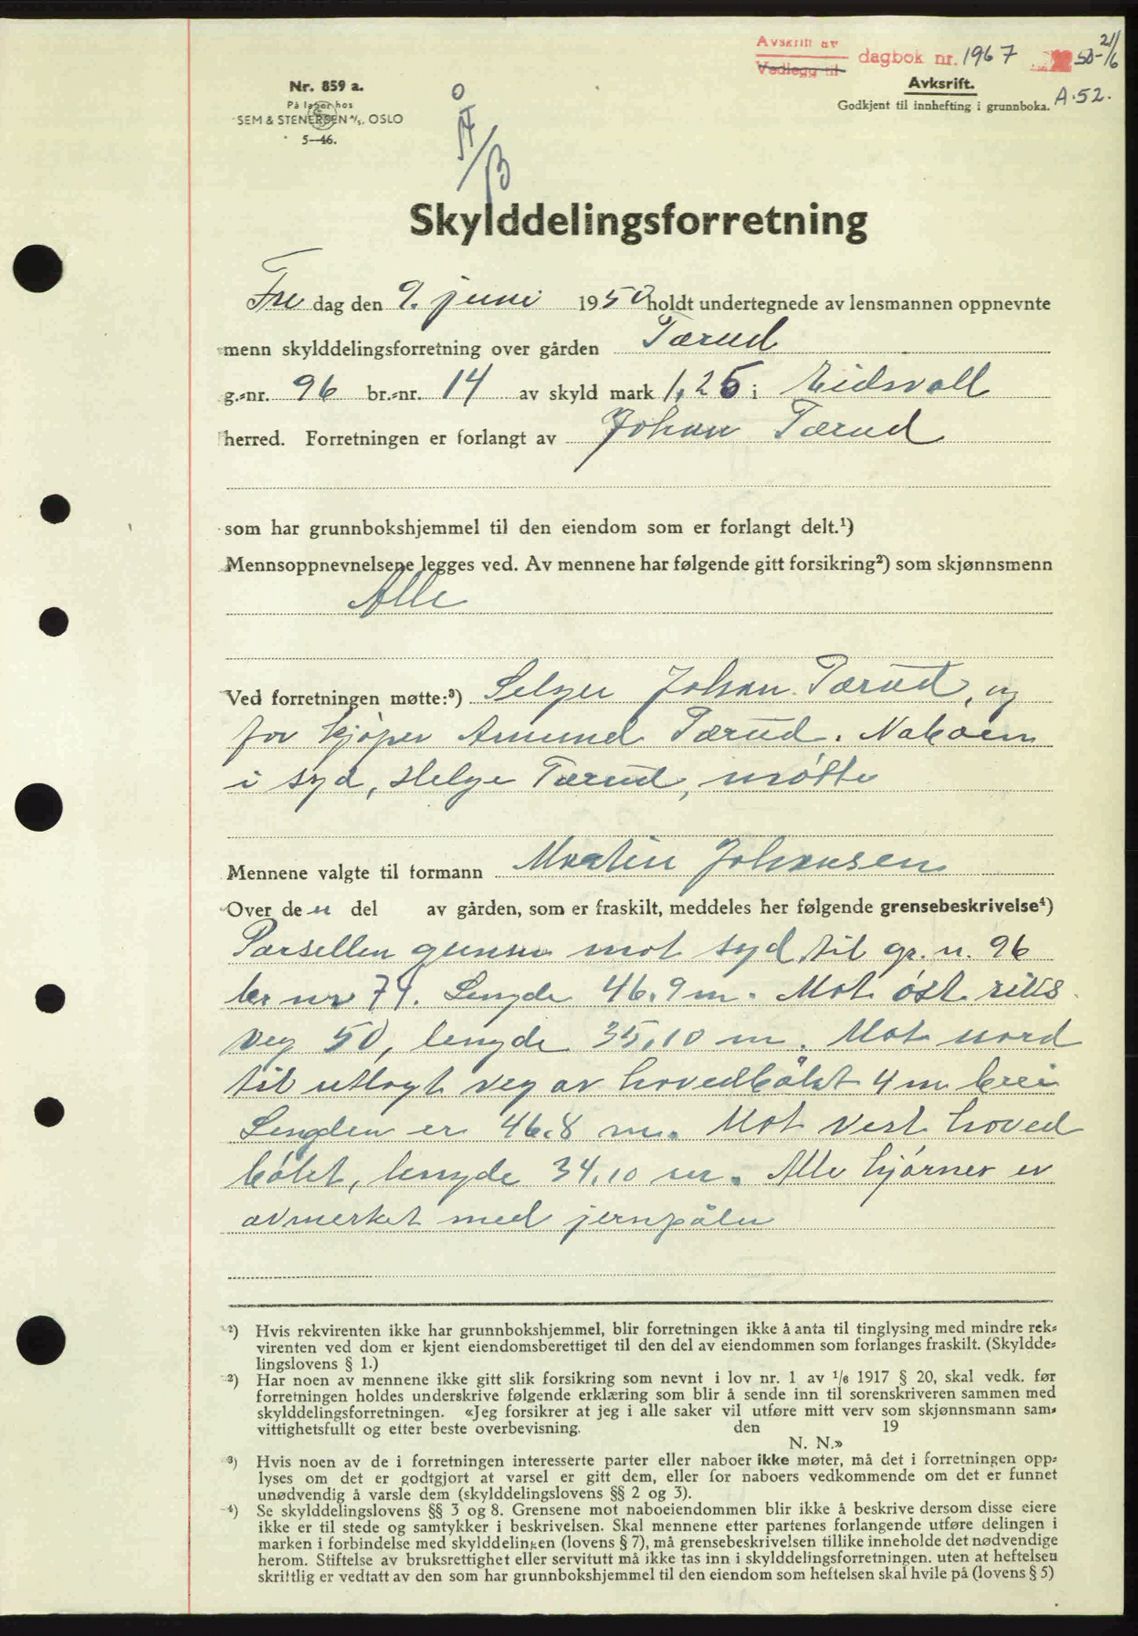 Avskrift av
Vedlegg til
dagbok nr. 1967
50-21/6
Avksrift.
A.52.
Godkjent til innhefting i grunnboka.
Nr. 859 a.
På lager hos
SEM & STENERSEN A/S, OSLO
5—46.
Skylddelingsforretning
Fre dag den 9. juni 1950 holdt undertegnede av lensmannen oppnevnte
menn skylddelingsforretning over gården Tærud
g.-nr. 96 br.-nr. 14 av skyld mark 1,25 i Eidsvoll
herred. Forretningen er forlangt av Johan Tærud
som har grunnbokshjemmel til den eiendom som er forlangt delt.¹)
Mennsoppnevnelsene legges ved. Av mennene har følgende gitt forsikring²) som skjønnsmenn
Alle
Ved forretningen møtte:³) Selger Johan Tærud, og
for kjøper Amund Tærud. Naboen
i syd, Helge Tærud, møtte
Mennene valgte til formann Martin Johansen
Over den del av gården, som er fraskilt, meddeles her følgende grensebeskrivelse⁴)
Parsellen grenser mot syd til gr. n. 96
br nr 74. Lengde 46.9 m. Mot øst riks
veg 50, lengde 35,10 m. Mot nord
til utlagt veg av hovedbølet 4 m brei
Lengden er 46.8 m. Mot vest hoved
bølet, lengde 34,10 m. Alle hjørner er
avmerket med jernpåler
¹) Hvis rekvirenten ikke har grunnbokshjemmel, blir forretningen ikke å anta til tinglysing med mindre rek-
virenten ved dom er kjent eiendomsberettiget til den del av eiendommen som forlanges fraskilt. (Skyldde-
lingslovens § 1.)
²) Har noen av mennene ikke gitt slik forsikring som nevnt i lov nr. 1 av 1/6 1917 § 20, skal vedk. før
forretningen holdes underskrive følgende erklæring som blir å sende inn til sorenskriveren sammen med
skylddelingsforretningen. «Jeg forsikrer at jeg i alle saker vil utføre mitt verv som skjønnsmann sam-
vittighetsfullt og etter beste overbevisning. den 19
N. N.»
³) Hvis noen av de i forretningen interesserte parter eller naboer ikke møter, må det i forretningen opp-
lyses om det er godtgjort at varsel er gitt dem, eller for naboers vedkommende om det er funnet
unødvendig å varsle dem (skylddelingslovens §§ 2 og 3).
⁴) Se skylddelingslovens §§ 3 og 8. Grensene mot naboeiendommen blir ikke å beskrive dersom disse eiere
ikke er til stede og samtykker i beskrivelsen. Skal mennene etter partenes forlangende utføre delingen i
marken i forbindelse med skylddelingen (lovens § 7), må grensebeskrivelsen tillike inneholde det nødvendige
herom. Stiftelse av bruksrettighet eller servitutt må ikke tas inn i skylddelingsforretningen. uten at heftelsen
skriftlig er vedtatt av den som har grunnbokshjemmel til den eiendom som heftelsen skal hvile på (lovens § 5)